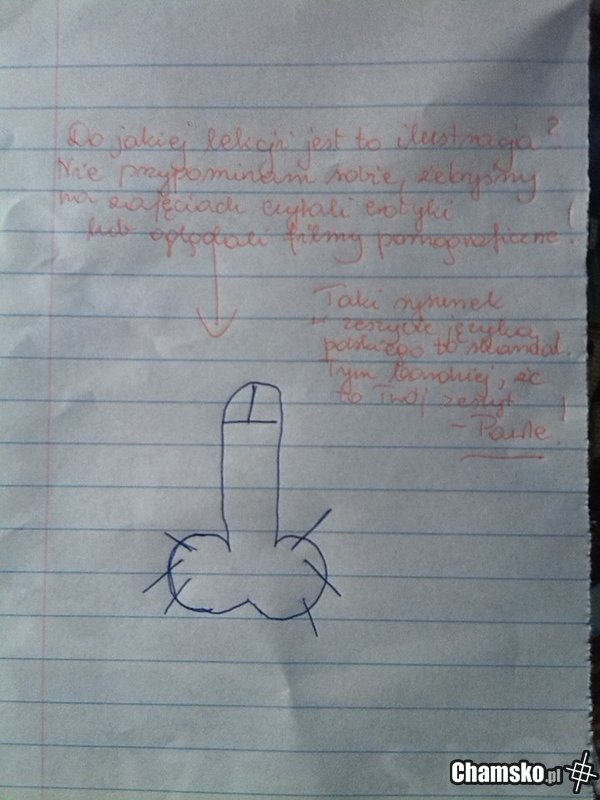 Do jakiej lekcji jest to ilustracja?
Nie przypominam sobie, żebyśmy
na zajęciach czytali erotyki
lub oglądali filmy pornograficzne!
Taki rysunek
w zeszycie języka
polskiego to skandal.
Tym bardziej, że
to Twój zeszyt
- Pawle!
Chamsko.pl